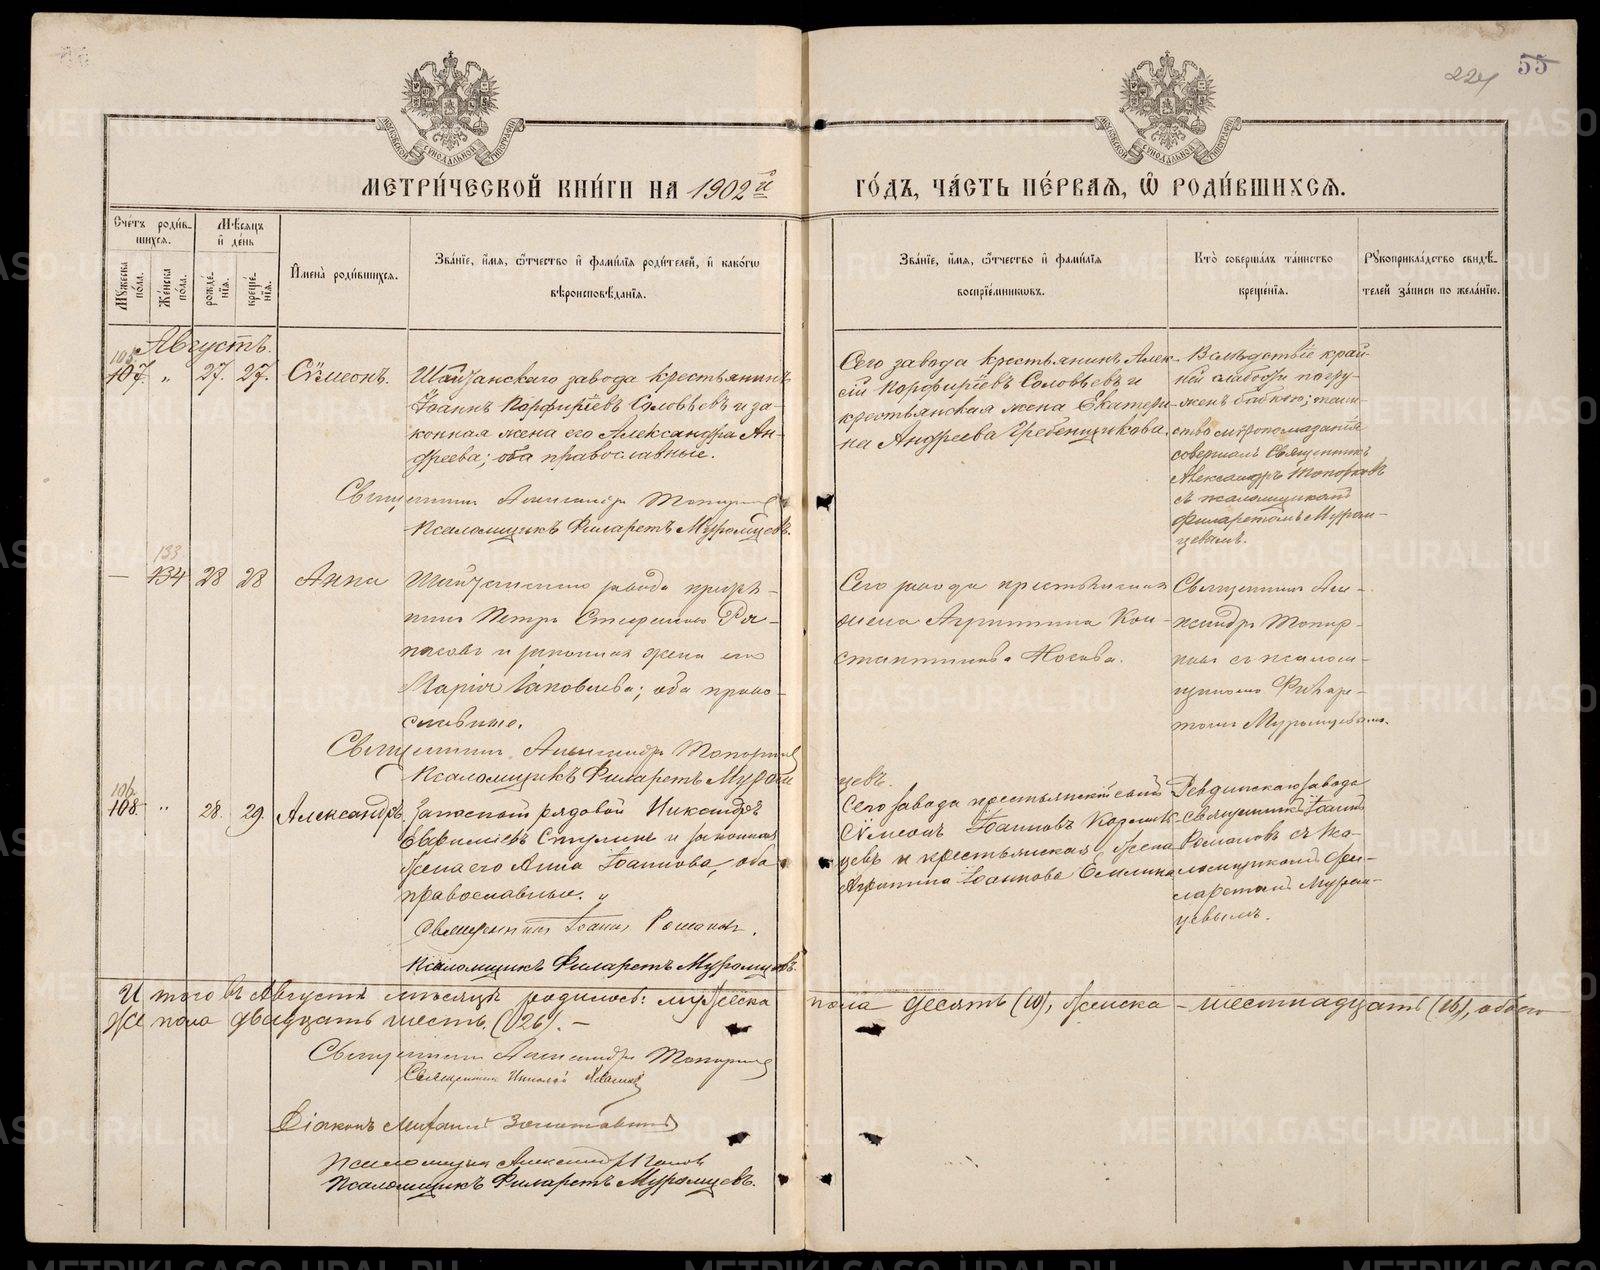 224
55
МОСКОВСКОЙ СѴНОДАЛЬНОЙ ТИПОГРАФІИ
МОСКОВСКОЙ СѴНОДАЛЬНОЙ ТИПОГРАФІИ
МЕТРИ́ЧЕСКОЙ КНИ́ГИ НА 1902й ГО́ДЪ, ЧА́СТЬ ПЕ́РВАЯ, Ѡ РОДИ́ВШИХСЯ.
Сче́тъ роди́в-
шихся.
Мꙋжеска по́ла.
Же́нска по́ла.
Мѣ́сяцъ
и де́нь
рожде́нїя.
креще́нїя.
Имена̀ роди́вшихся.
Зва́нїе, и́мя, ѻ́тчество и фами́лїя роди́телей, и како́гѡ
вѣроисповѣ́данїя.
Зва́нїе, и́мя, ѻ́тчество и фами́лїя
воспрїе́мниковъ.
Кто̀ соверша́лъ та́инство
креще́нїя.
Рꙋкоприкла́дство свидѣ́-
телей за́писи по жела́нїю.
Августъ.
105.
107. „ 27. 27. Сѵмеонъ.
Шайтанскаго завода крестьянинъ
Іоаннъ Порфиріевъ Соловьевъ и за-
конная жена его Александра Ан-
дреева; оба православные.
Священникъ Александръ Топорковъ
Псаломщикъ Филаретъ Муромцевъ.
Сего завода крестьянинъ Алек-
сій Порфиріевъ Соловьевъ и
крестьянская жена Екатери-
на Андреева Гребенщикова.
Вслѣдствіе край-
ней слабости погру-
женъ бабкою; таин-
ство мѵропомазанія
совершалъ Священникъ
Александръ Топорковъ
съ псаломщикомъ
Филаретомъ Муром-
цевымъ.
133
— 134 28 28 Анна
Шайтанскаго завода
Петръ
и законная жена его
Марія Іаковлева; оба право-
славные.
Священникъ Александръ Топорковъ
Псаломщикъ Филаретъ Муром
цевъ.
Сего завода крестьянская
жена Агриппина Кон-
стантинова Носова.
Священникъ Але-
ксандръ Топор-
ковъ съ псалом-
щикомъ Филаре-
томъ Муромцевымъ.
106.
108. „ 28. 29. Александръ.
Запасный рядовой Никандръ
Евфиміевъ и законная
жена его Анна Іоаннова, оба
православные. „
Священникъ Іоаннъ Романовъ.
Псаломщикъ Филаретъ Муромцевъ.
Сего завода крестьянскій сынъ
Сѵмеонъ Іоанновъ
и крестьянская жена
Агрипина Іоаннова
Ревдинскаго завода
священникъ Іоаннъ
Романовъ съ пса-
ломщикомъ Фи-
ларетомъ Муром-
цевымъ.
И того въ Августѣ мѣсяцѣ родилось: мужеска пола десять (10), женска – шестнадцать (16), обоего
же пола двадцать шесть (26). –
Священникъ Александръ Топорковъ
Священникъ Николай
Діаконъ
Псаломщикъ Александръ Поповъ
Псаломщикъ Филаретъ Муромцевъ.
METRIKI.GASO-URAL.RU